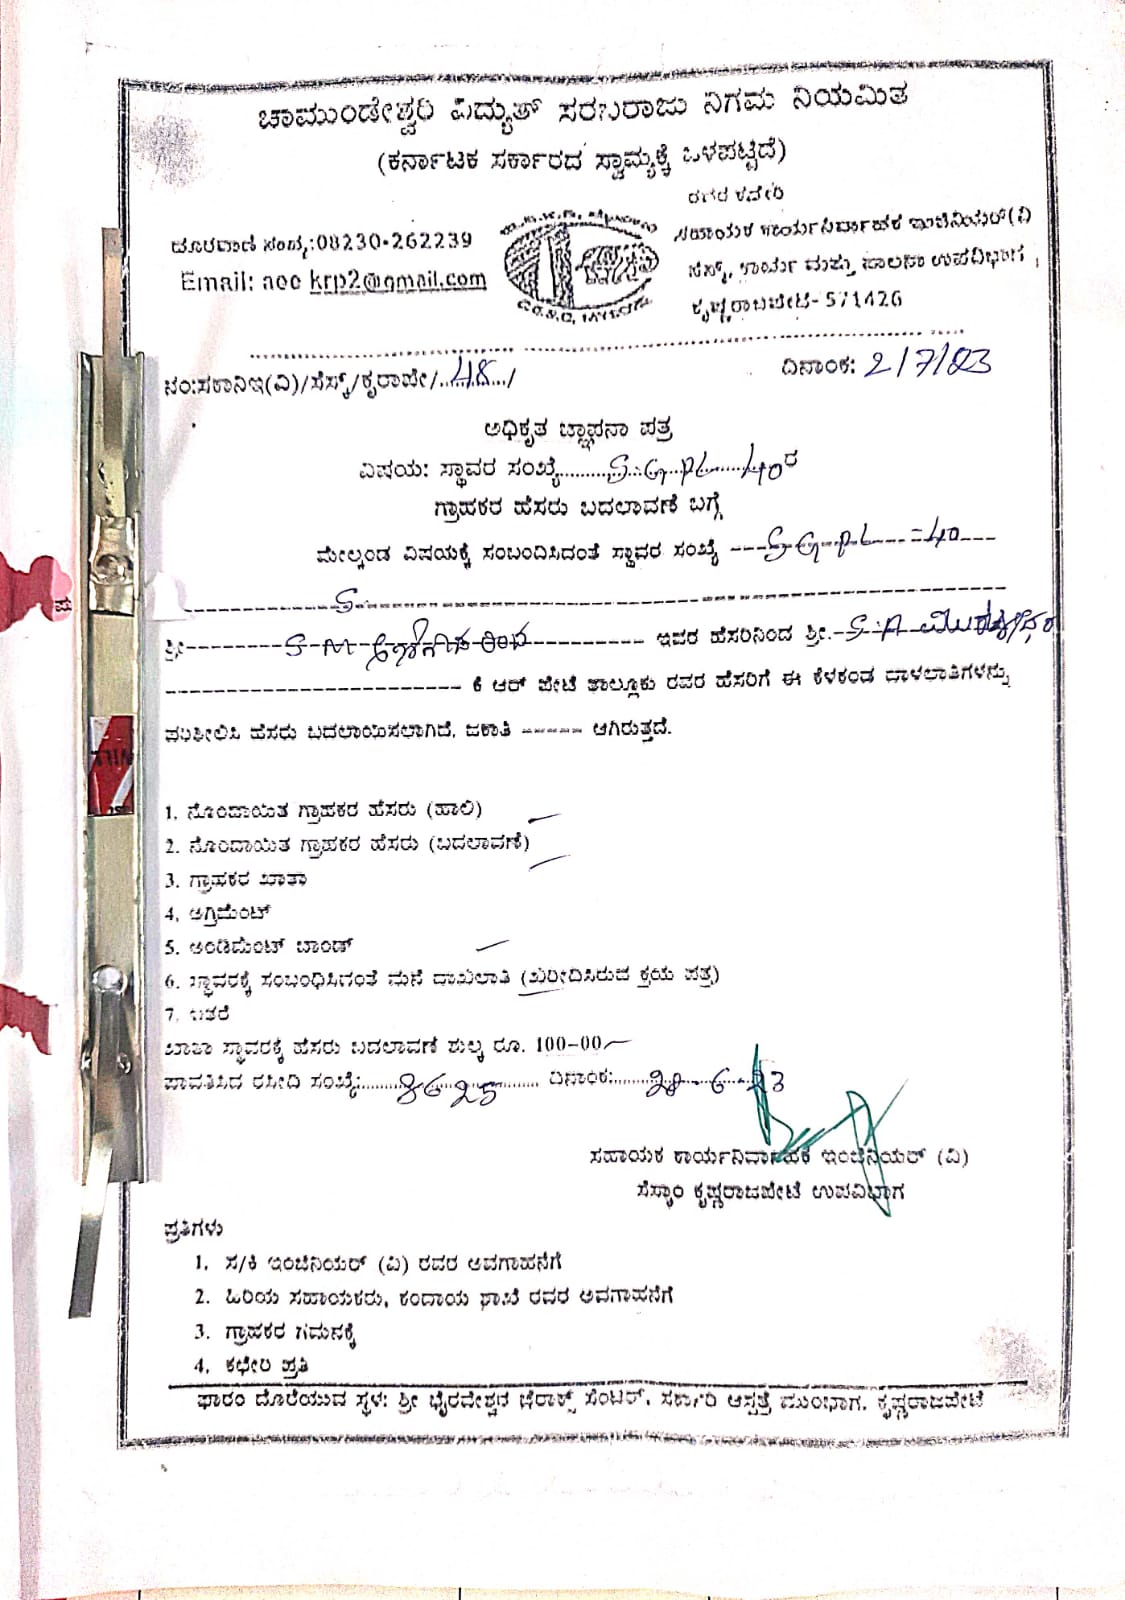 ಚಾಮುಂಡೇಶ್ವರಿ ವಿದ್ಯುತ್ ಸರಬರಾಜು ನಿಗಮ ನಿಯಮಿತ
(ಕರ್ನಾಟಕ ಸರ್ಕಾರದ ಸ್ವಾಮ್ಯಕ್ಕೆ ಒಳಪಟ್ಟಿದೆ)
ರವರ ಕಚೇರಿ
ಸಹಾಯಕ ಕಾರ್ಯನಿರ್ವಾಹಕ ಇಂಜಿನಿಯರ್(ವಿ
ದೂರವಾಣಿ ಸಂಖ್ಯೆ:08230-262239
ಸೆಸ್ಕ್, ಕಾರ್ಯ ಮತ್ತು ಪಾಲನಾ ಉಪವಿಭಾಗ,
Email: aee krp2@gmail.com
ಕೃಷ್ಣರಾಜಪೇಟೆ-571426
ನಂ:ಸಕಾನಿಇ(ವಿ)/ಸೆಸ್ಕ್/ಕೃರಾಪೇ/..48.../
ದಿನಾಂಕ: 2/7/23
ಅಧಿಕೃತ ಜ್ಞಾಪನಾ ಪತ್ರ
ವಿಷಯ: ಸ್ಥಾವರ ಸಂಖ್ಯೆ.........S.G.PL.....40ರ
ಗ್ರಾಹಕರ ಹೆಸರು ಬದಲಾವಣೆ ಬಗ್ಗೆ
ಮೇಲ್ಕಂಡ ವಿಷಯಕ್ಕೆ ಸಂಬಂದಿಸಿದಂತೆ ಸ್ಥಾವರ ಸಂಖ್ಯೆ ---SG-PL---=40---
ಶ್ರೀ--------S M ---------- ಇವರ ಹೆಸರಿನಿಂದ ಶ್ರೀ.-S-A-
------------------------- ಕೆ ಆರ್ ಪೇಟೆ ತಾಲ್ಲೂಕು ರವರ ಹೆಸರಿಗೆ ಈ ಕೆಳಕಂಡ ದಾಖಲಾತಿಗಳನ್ನು
ಪರಿಶೀಲಿಸಿ ಹೆಸರು ಬದಲಾಯಿಸಲಾಗಿದೆ, ಜಕಾತಿ ------ ಆಗಿರುತ್ತದೆ.
1. ನೊಂದಾಯಿತ ಗ್ರಾಹಕರ ಹೆಸರು (ಹಾಲಿ)
2. ನೊಂದಾಯಿತ ಗ್ರಾಹಕರ ಹೆಸರು (ಬದಲಾವಣೆ)
3. ಗ್ರಾಹಕರ ಖಾತಾ
4. ಅಗ್ರಿಮೆಂಟ್
5. ಅಂಡಿಮೆಂಟ್ ಬಾಂಡ್
6. ಸ್ಥಾವರಕ್ಕೆ ಸಂಬಂಧಿಸಿದಂತೆ ಮನೆ ದಾಖಲಾತಿ (ಖರೀದಿಸಿರುವ ಕ್ರಯ ಪತ್ರ)
7. ಇತರೆ
ಖಾತಾ ಸ್ಥಾವರಕ್ಕೆ ಹೆಸರು ಬದಲಾವಣೆ ಶುಲ್ಕ ರೂ. 100-00
ಪಾವತಿಸಿದ ರಸೀದಿ ಸಂಖ್ಯೆ:......8625...... ದಿನಾಂಕ:......28-6-23
ಸಹಾಯಕ ಕಾರ್ಯನಿರ್ವಾಹಕ ಇಂಜಿನಿಯರ್ (ವಿ)
ಸೆಸ್ಕಾಂ ಕೃಷ್ಣರಾಜಪೇಟೆ ಉಪವಿಭಾಗ
ಪ್ರತಿಗಳು
1. ಸ/ಕಿ ಇಂಜಿನಿಯರ್ (ವಿ) ರವರ ಅವಗಾಹನೆಗೆ
2. ಹಿರಿಯ ಸಹಾಯಕರು, ಕಂದಾಯ ಶಾಖೆ ರವರ ಅವಗಾಹನೆಗೆ
3. ಗ್ರಾಹಕರ ಗಮನಕ್ಕೆ
4. ಕಛೇರಿ ಪ್ರತಿ
ಫಾರಂ ದೊರೆಯುವ ಸ್ಥಳ: ಶ್ರೀ ಭೈರವೇಶ್ವರ ಜೆರಾಕ್ಸ್ ಸೆಂಟರ್, ಸರ್ಕಾರಿ ಆಸ್ಪತ್ರೆ ಮುಂಭಾಗ, ಕೃಷ್ಣರಾಜಪೇಟೆ